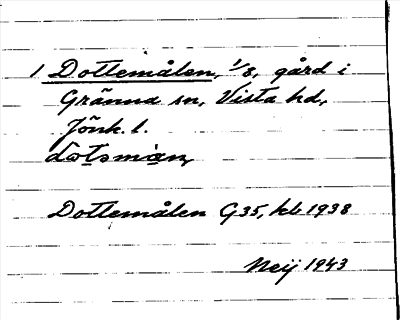 1 Dottemålen, 1/8, gård i
Gränna sn, Vista hd,
Jönk. l.
Dottemålen G35, kb 1938
Neij 1943